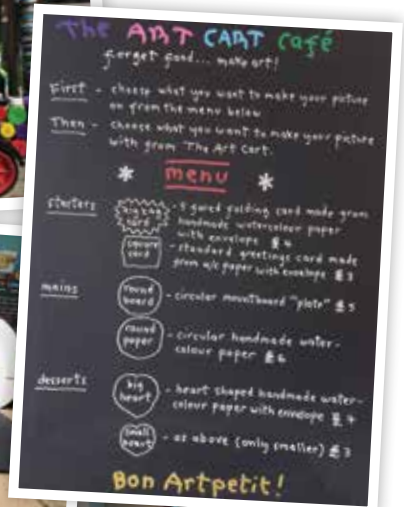 The ART CART Café
forget food... make art!
First - choose what you want to make your picture
on from the menu below
Then - choose what you want to make your picture
with from The Art Cart.
menu
starters
zig zag card - 3 sided folding card made from
handmade watercolour paper
with envelope £4
square card - standard greetings card made
from w/c paper with envelope £3
mains
round board - circular mountboard "plate" £5
round paper - circular handmade water-
colour paper £6
desserts
big heart - heart shaped handmade water-
colour paper with envelope £4
small heart - as above (only smaller) £3
Bon Artpetit!